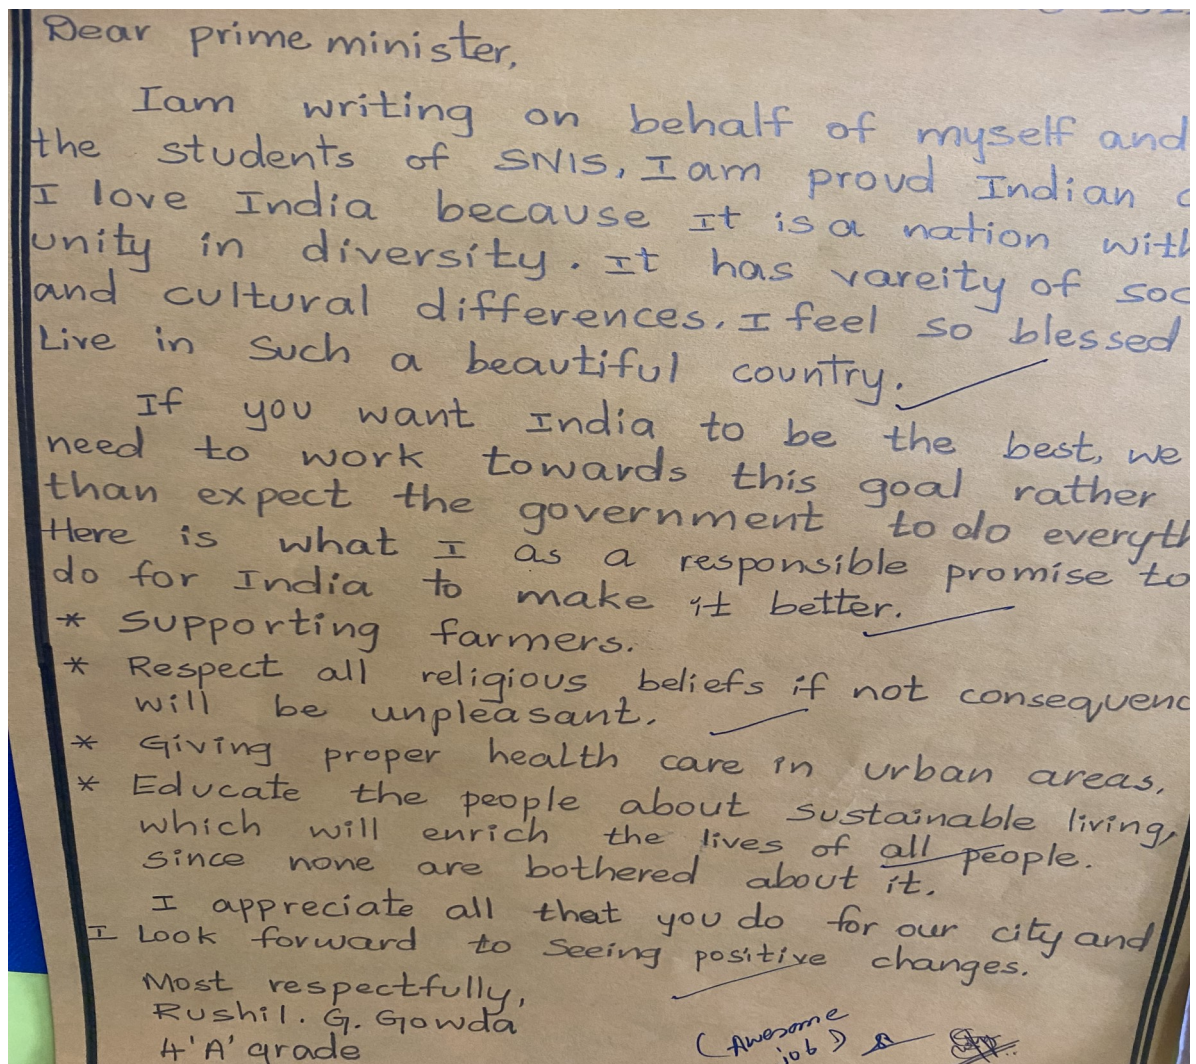 Dear prime minister,
Iam writing on behalf of myself and
the students of SNIS, I am proud Indian
I love India because It is a nation with
unity in diversity. It has vareity of
and cultural differences. I feel so blessed
Live in such a beautiful country.
If you want India to be the best, we
need to work towards this goal rather
than expect the government to do everyth
Here is what I as a responsible promise to
do for India to make it better.
* Supporting farmers.
* Respect all religious beliefs if not consequenc
will be unpleasant.
* Giving proper health care in urban areas.
* Educate the people about sustainable living,
which will enrich the lives of all people.
since none are bothered about it.
I appreciate all that you do for our city and
I Look forward to seeing positive changes.
Most respectfully,
Rushil. G. Gowda
4 'A' grade
(Awesome
job)